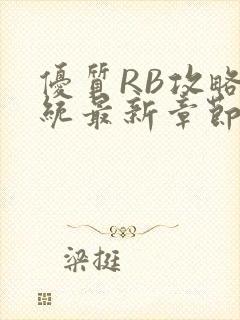 優質RB攻略
統最新章節
梁挺